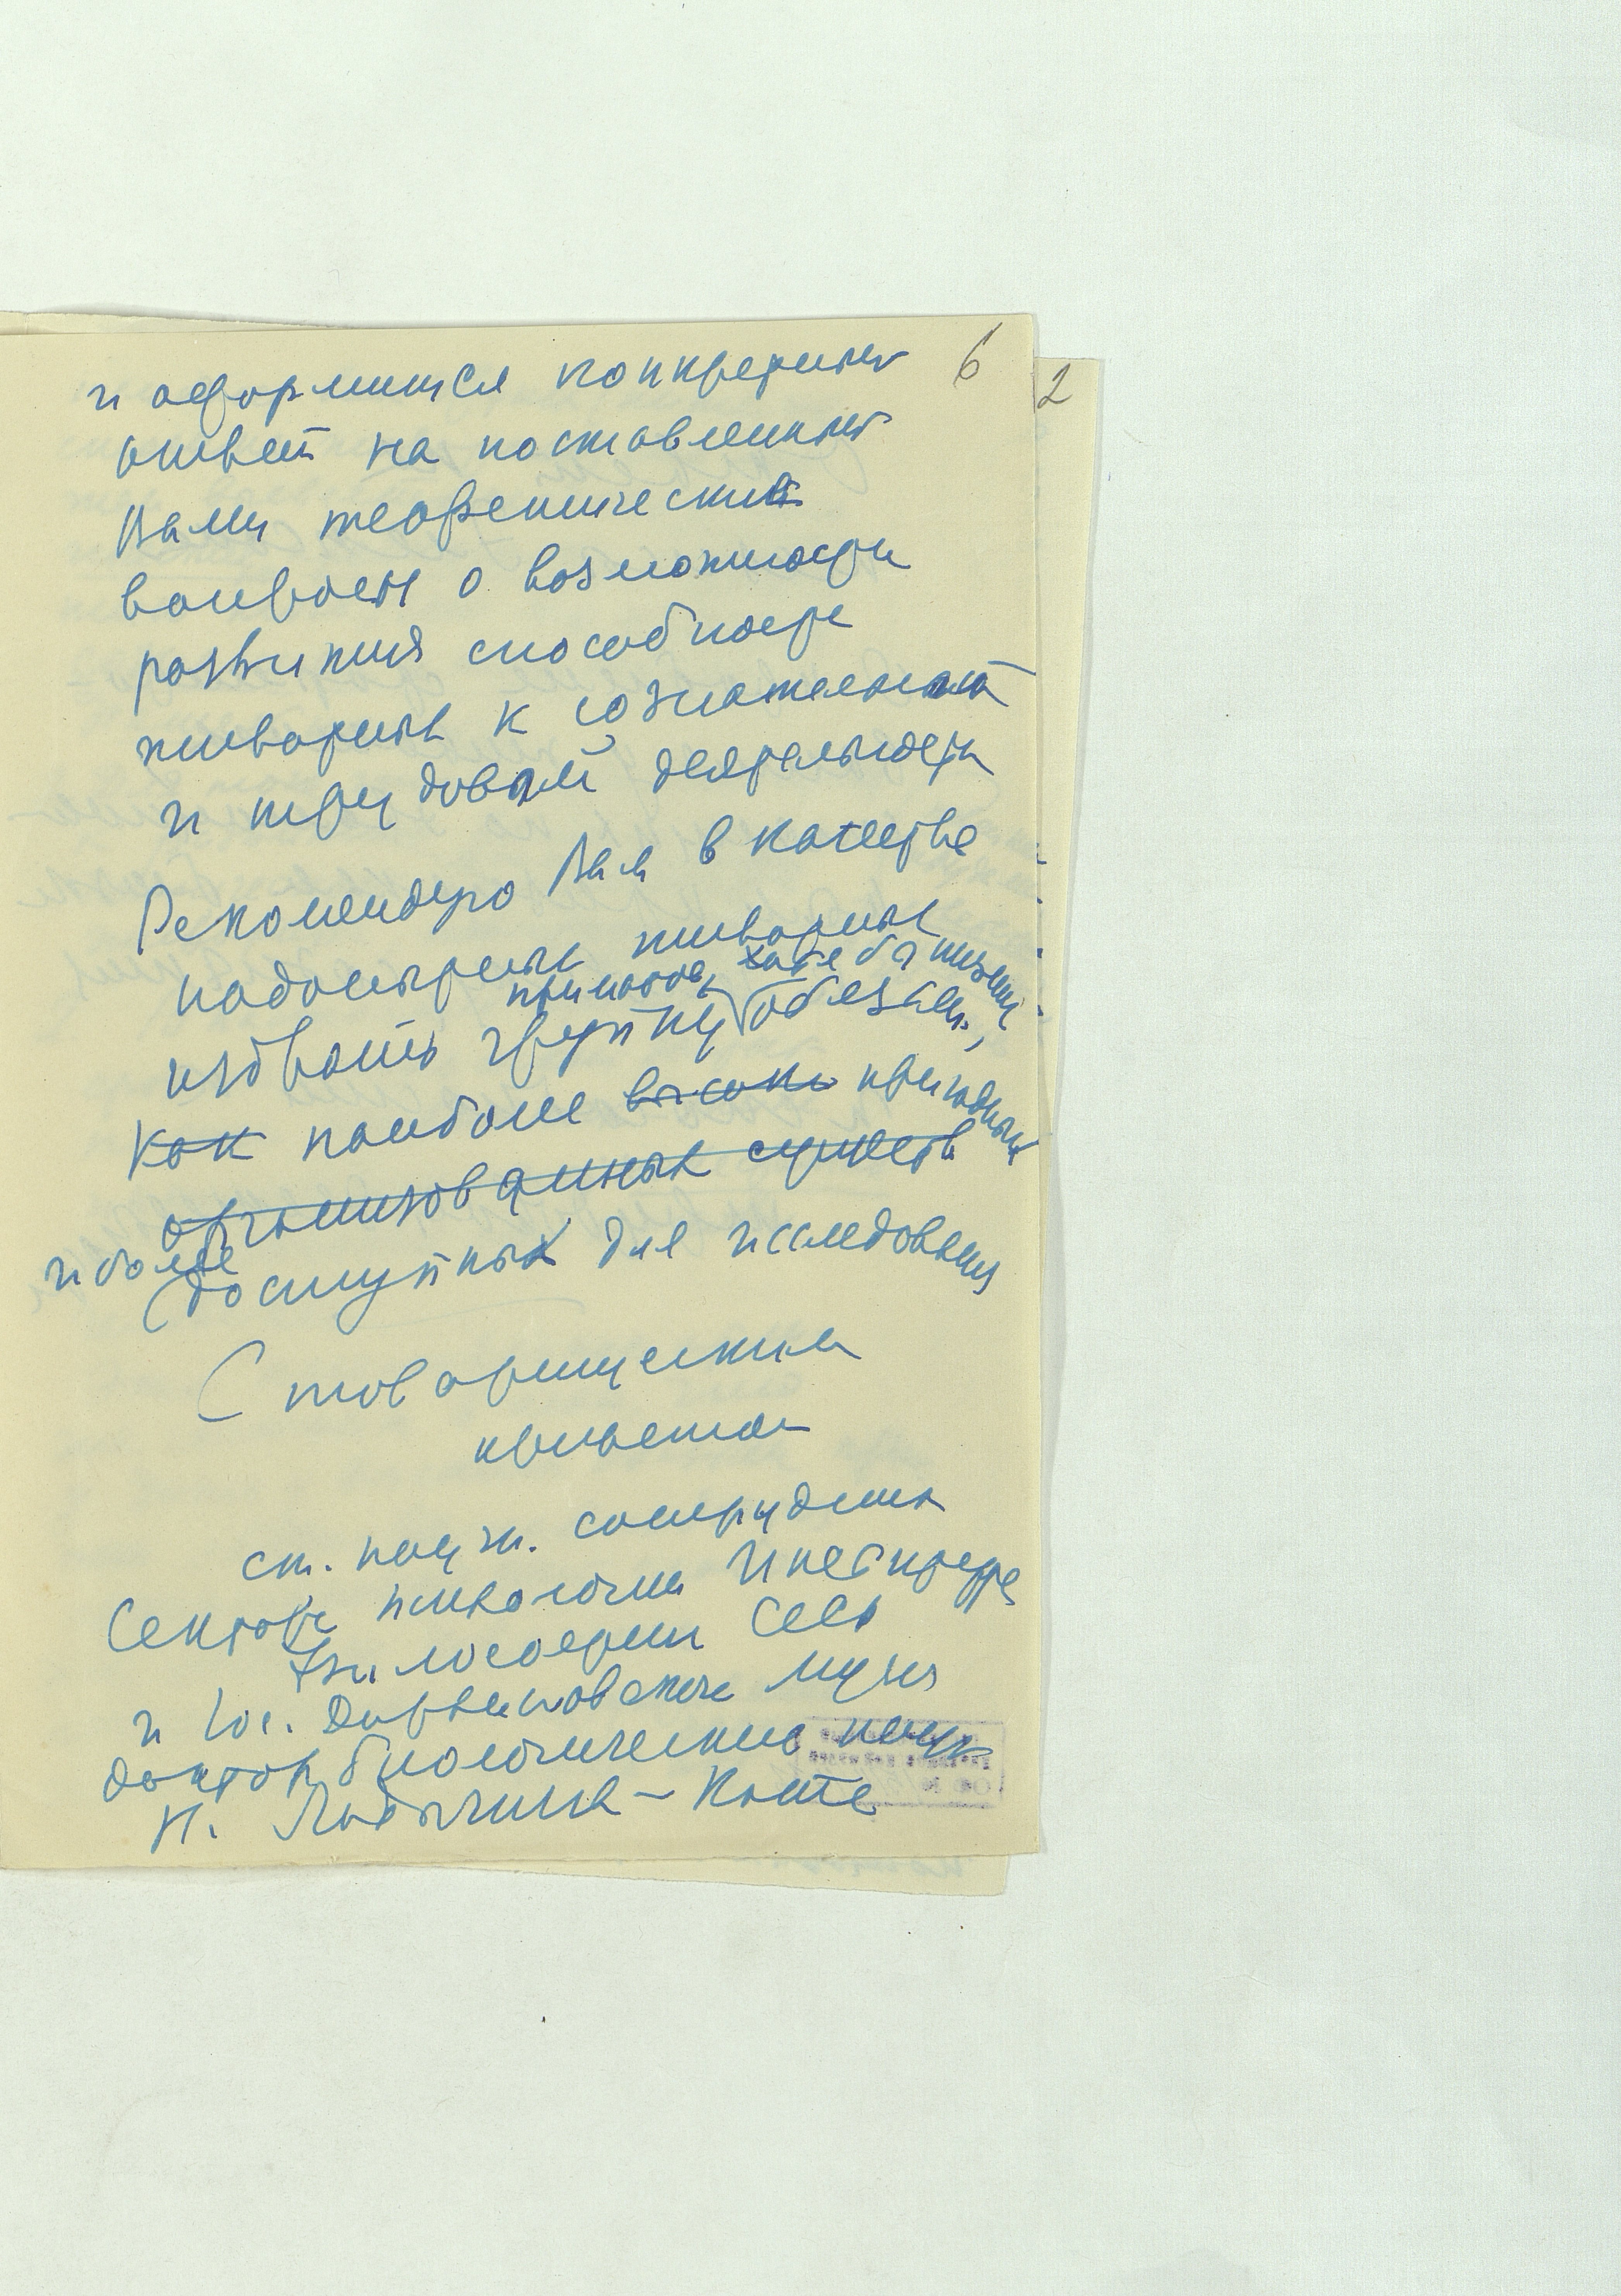 6
2
и оформится конкретный
ответ на поставленный
Вами теоретический
вопрос о возможности
развития способности
животных к сознательной
и трудовой деятельности
Рекомендую Вам в качестве
подопытных животных
приматов, хотя бы низших
избрать группу обезьян,
как наиболее высоко пригодных
организованных существ
и более
доступных для исследования
С товарищеским
приветом
ст. научн. сотрудник
Сектора психологии Института
Философии СССР
и Гос. Дарвиновского Музея
доктор биологических наук
Н. Ладыгина-Котс